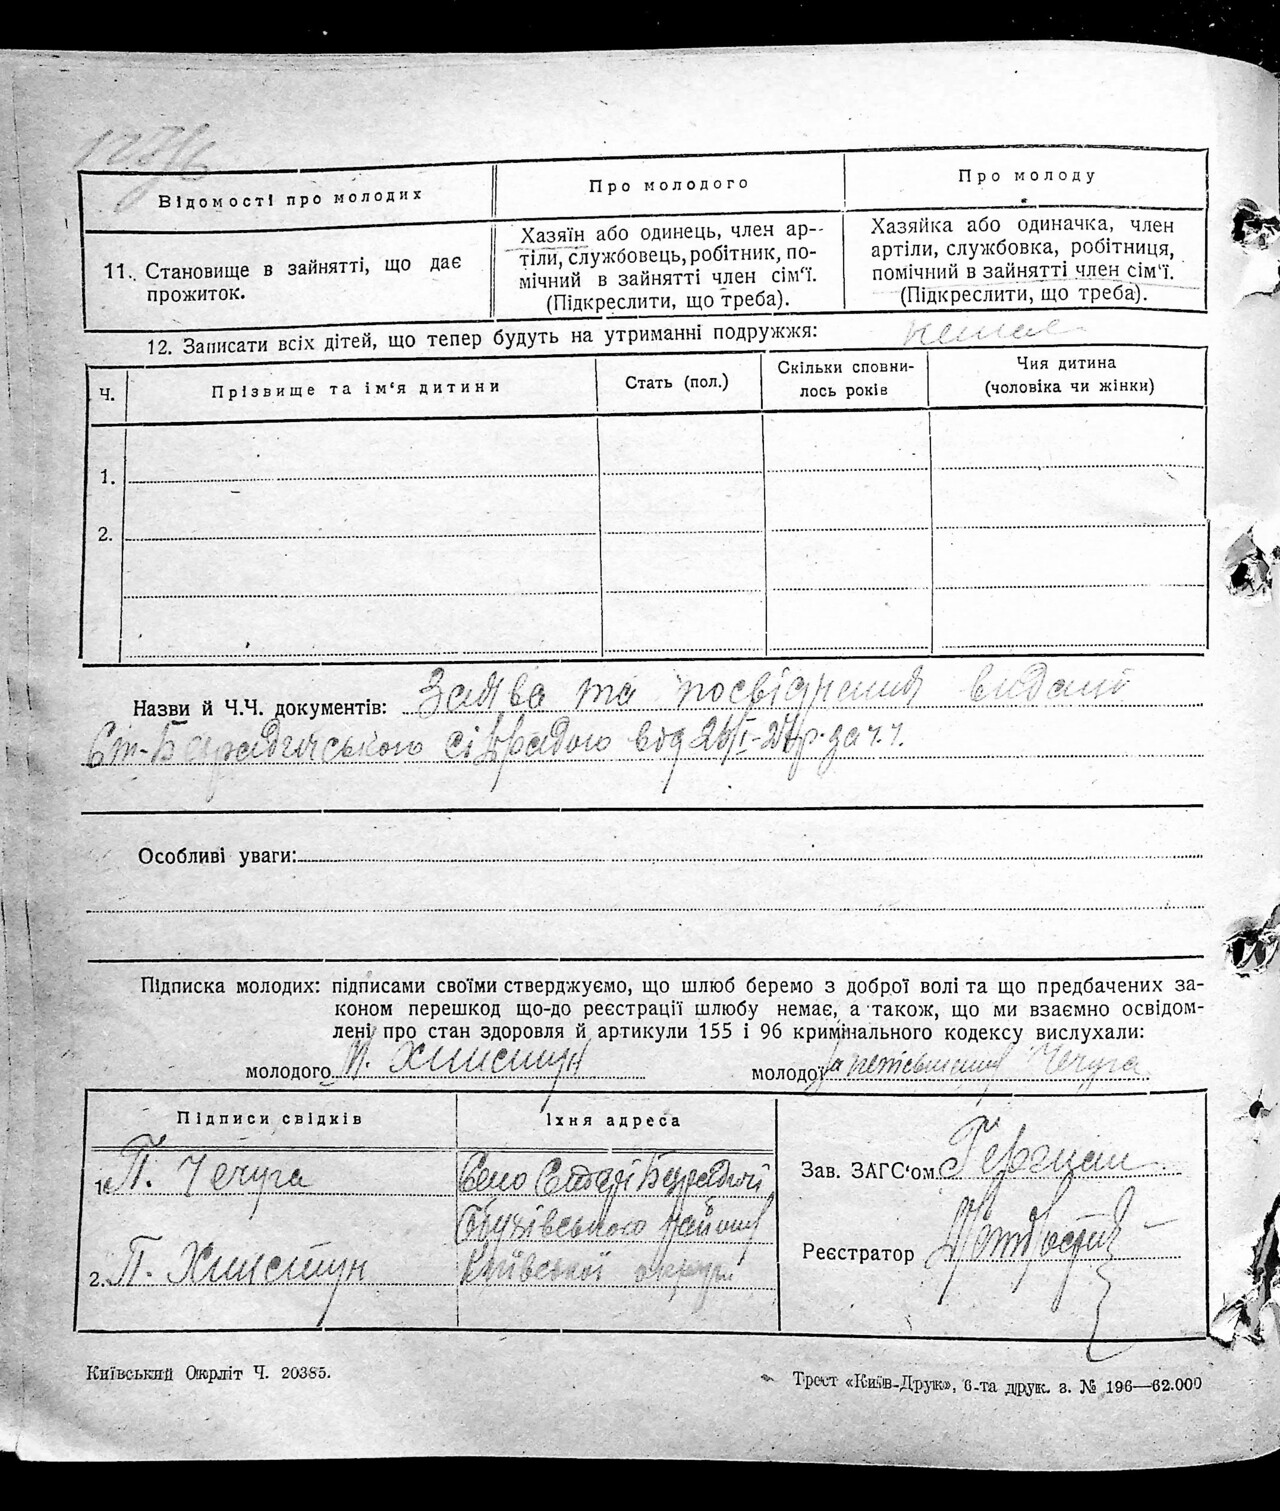 Відомості про молодих
Про молодого
Про молоду
11. Становище в зайнятті, що дає
прожиток.
Хазяїн або одинець, член ар-
тіли, службовець, робітник, по-
мічний в зайнятті член сім'ї.
(Підкреслити, що треба).
Хазяйка або одиначка, член
артіли, службовка, робітниця,
помічний в зайнятті член сім'ї.
(Підкреслити, що треба).
12. Записати всіх дітей, що тепер будуть на утриманні подружжя: немає
Ч.
Прізвище та ім'я дитини
Стать (пол.)
Скільки сповни-
лось років
Чия дитина
(чоловіка чи жінки)
1.
2.
Назви й Ч.Ч. документів: Заява та посвідчення видані
сільрадою від
Особливі уваги:
Підписка молодих: підписами своїми стверджуємо, що шлюб беремо з доброї волі та що предбачених за-
коном перешкод що-до реєстрації шлюбу немає, а також, що ми взаємно освідом-
лені про стан здоровля й артикули 155 і 96 кримінального кодексу вислухали:
молодого
молодої Чечуга
Підписи свідків
Їхня адреса
1. П. Чечуга
Село Старі Безрадичі
Обухівського району
2. П.
Київської округи
Зав. ЗАГС'ом
Реєстратор
Київський Окрліт Ч. 20385.
Трест «Київ-Друк», 6-та друк. з. № 196—62.000